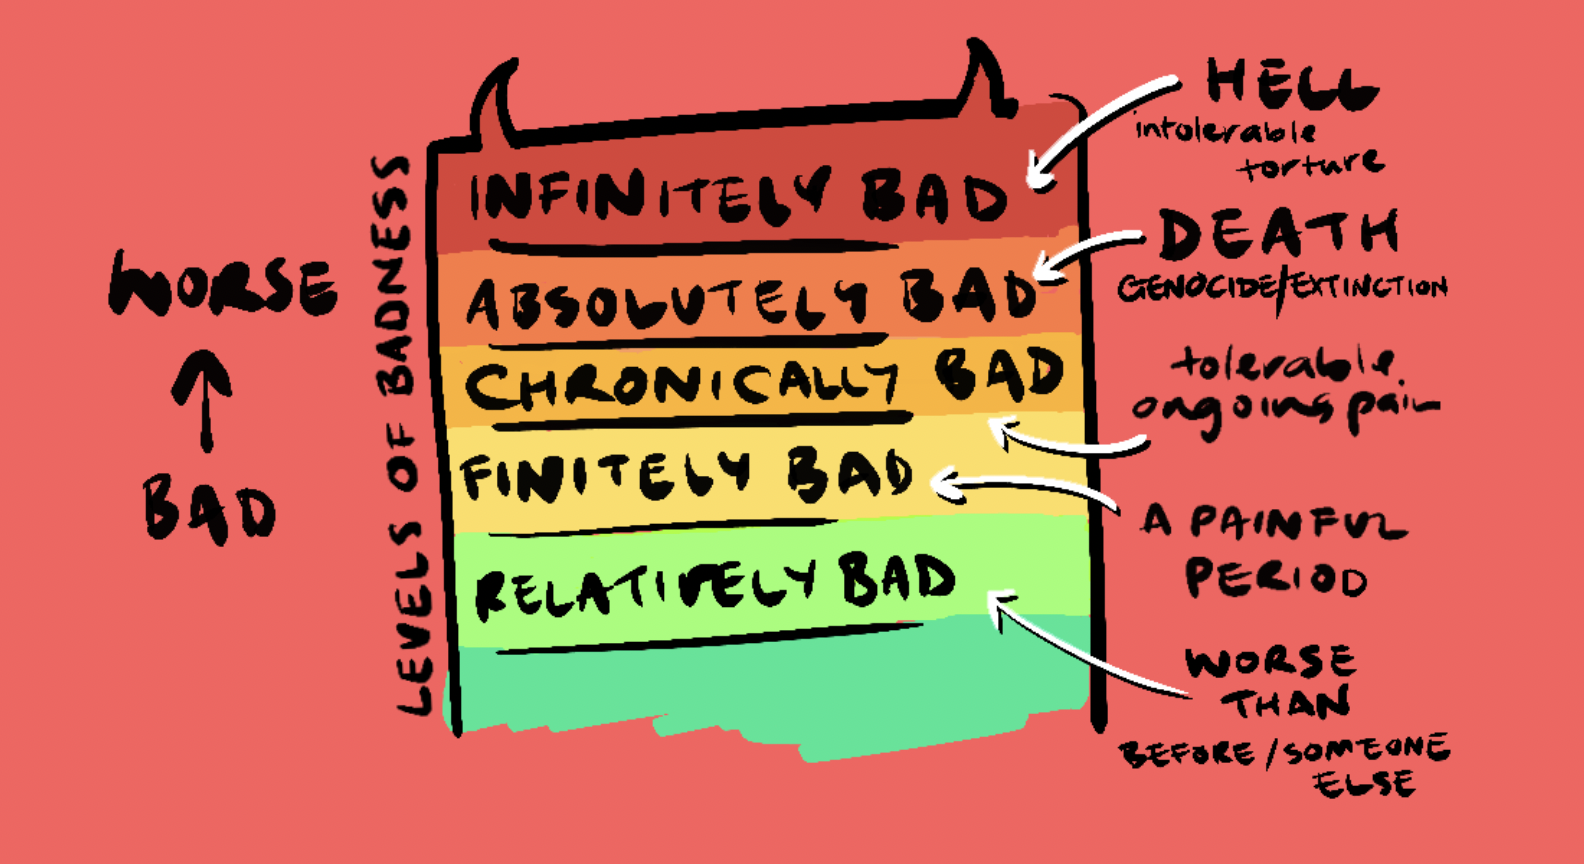 WORSE
BAD
LEVELS OF BADNESS
INFINITELY BAD
ABSOLUTELY BAD
CHRONICALLY BAD
FINITELY BAD
RELATIVELY BAD
HELL
intolerable
torture
DEATH
GENOCIDE/EXTINCTION
tolerable
ongoing pain
A PAINFUL
PERIOD
WORSE
THAN
BEFORE/SOMEONE
ELSE